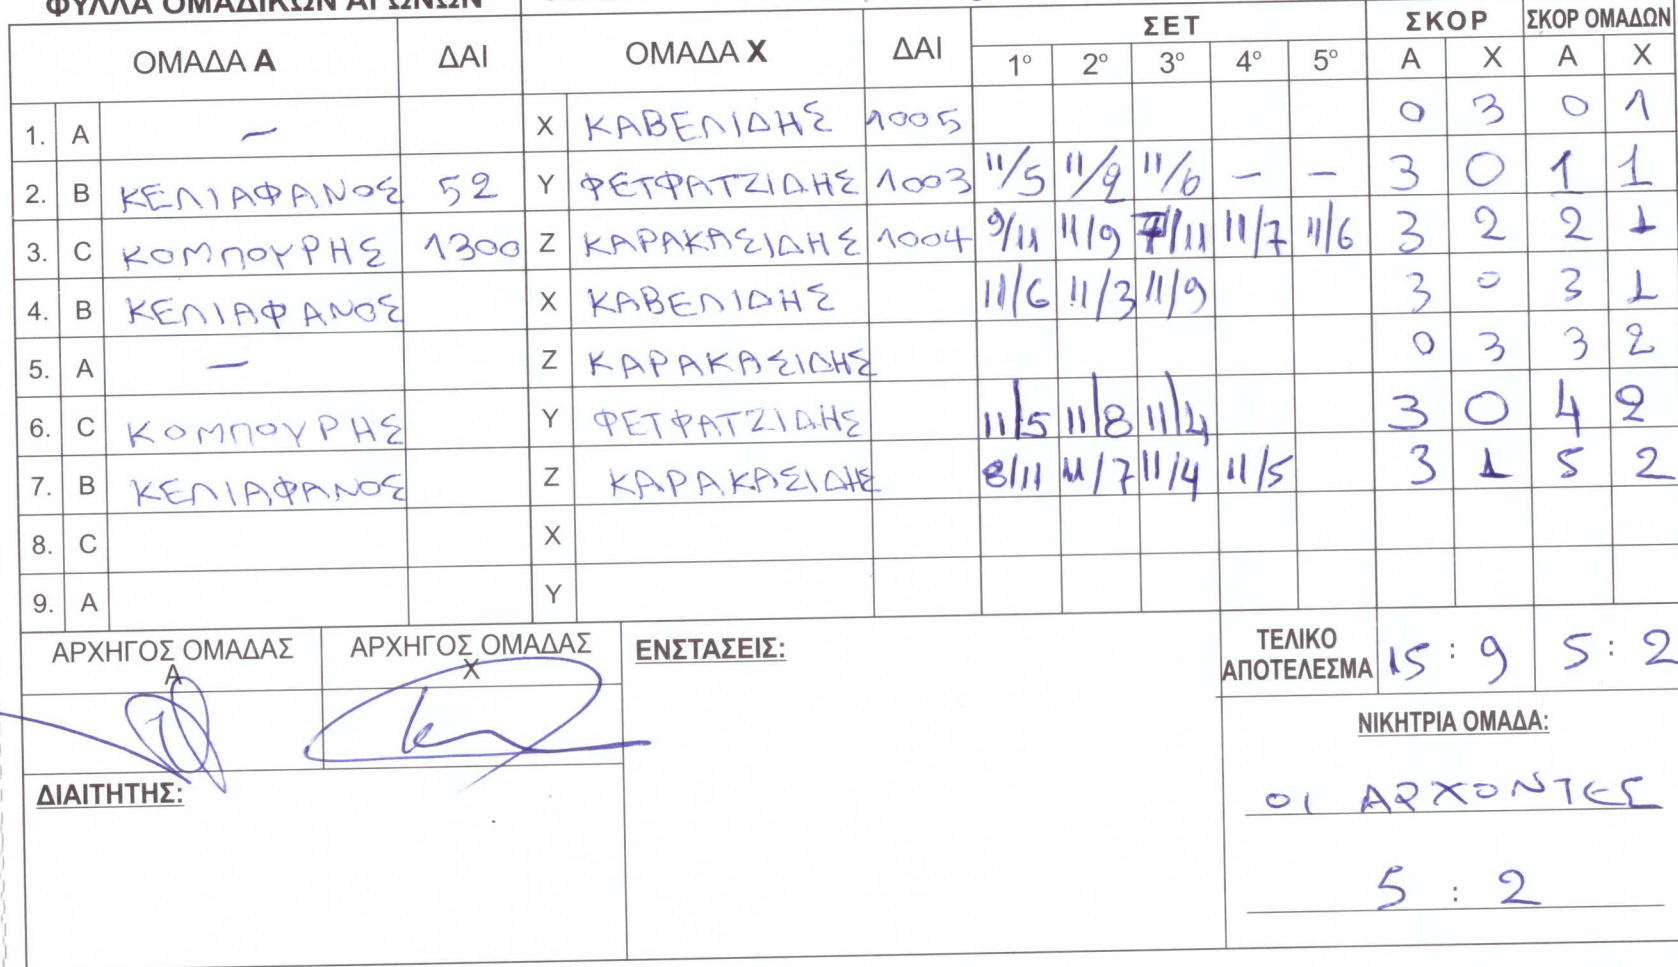 ΦΥΛΛΑ ΟΜΑΔΙΚΩΝ ΑΓΩΝΩΝ
ΟΜΑΔΑ Α ΔΑΙ ΟΜΑΔΑ Χ ΔΑΙ ΣΕΤ ΣΚΟΡ ΣΚΟΡ ΟΜΑΔΩΝ
1ο 2ο 3ο 4ο 5ο Α Χ Α Χ
1. Α – Χ ΚΑΒΕΛΙΔΗΣ 1005 0 3 0 1
2. Β ΚΕΛΙΑΦΑΝΟΣ 52 Υ ΦΕΤΦΑΤΖΙΔΗΣ 1003 11/5 11/2 11/6 – – 3 0 1 1
3. C ΚΟΜΠΟΥΡΗΣ 1300 Ζ ΚΑΡΑΚΑΣΙΔΗΣ 1004 9/11 11/9 7/11 11/7 11/6 3 2 2 1
4. Β ΚΕΛΙΑΦΑΝΟΣ Χ ΚΑΒΕΛΙΔΗΣ 11/6 11/3 11/9 3 0 3 1
5. Α – Ζ ΚΑΡΑΚΑΣΙΔΗΣ 0 3 3 2
6. C ΚΟΜΠΟΥΡΗΣ Υ ΦΕΤΦΑΤΖΙΔΗΣ 11/5 11/8 11/4 3 0 4 2
7. Β ΚΕΛΙΑΦΑΝΟΣ Ζ ΚΑΡΑΚΑΣΙΔΗΣ 8/11 11/7 11/4 11/5 3 1 5 2
8. C Χ
9. Α Υ
ΑΡΧΗΓΟΣ ΟΜΑΔΑΣ Α ΑΡΧΗΓΟΣ ΟΜΑΔΑΣ Χ ΕΝΣΤΑΣΕΙΣ: ΤΕΛΙΚΟ ΑΠΟΤΕΛΕΣΜΑ 15 : 9 5 : 2
ΝΙΚΗΤΡΙΑ ΟΜΑΔΑ:
ΔΙΑΙΤΗΤΗΣ:
ΟΙ ΑΡΧΟΝΤΕΣ
5 : 2